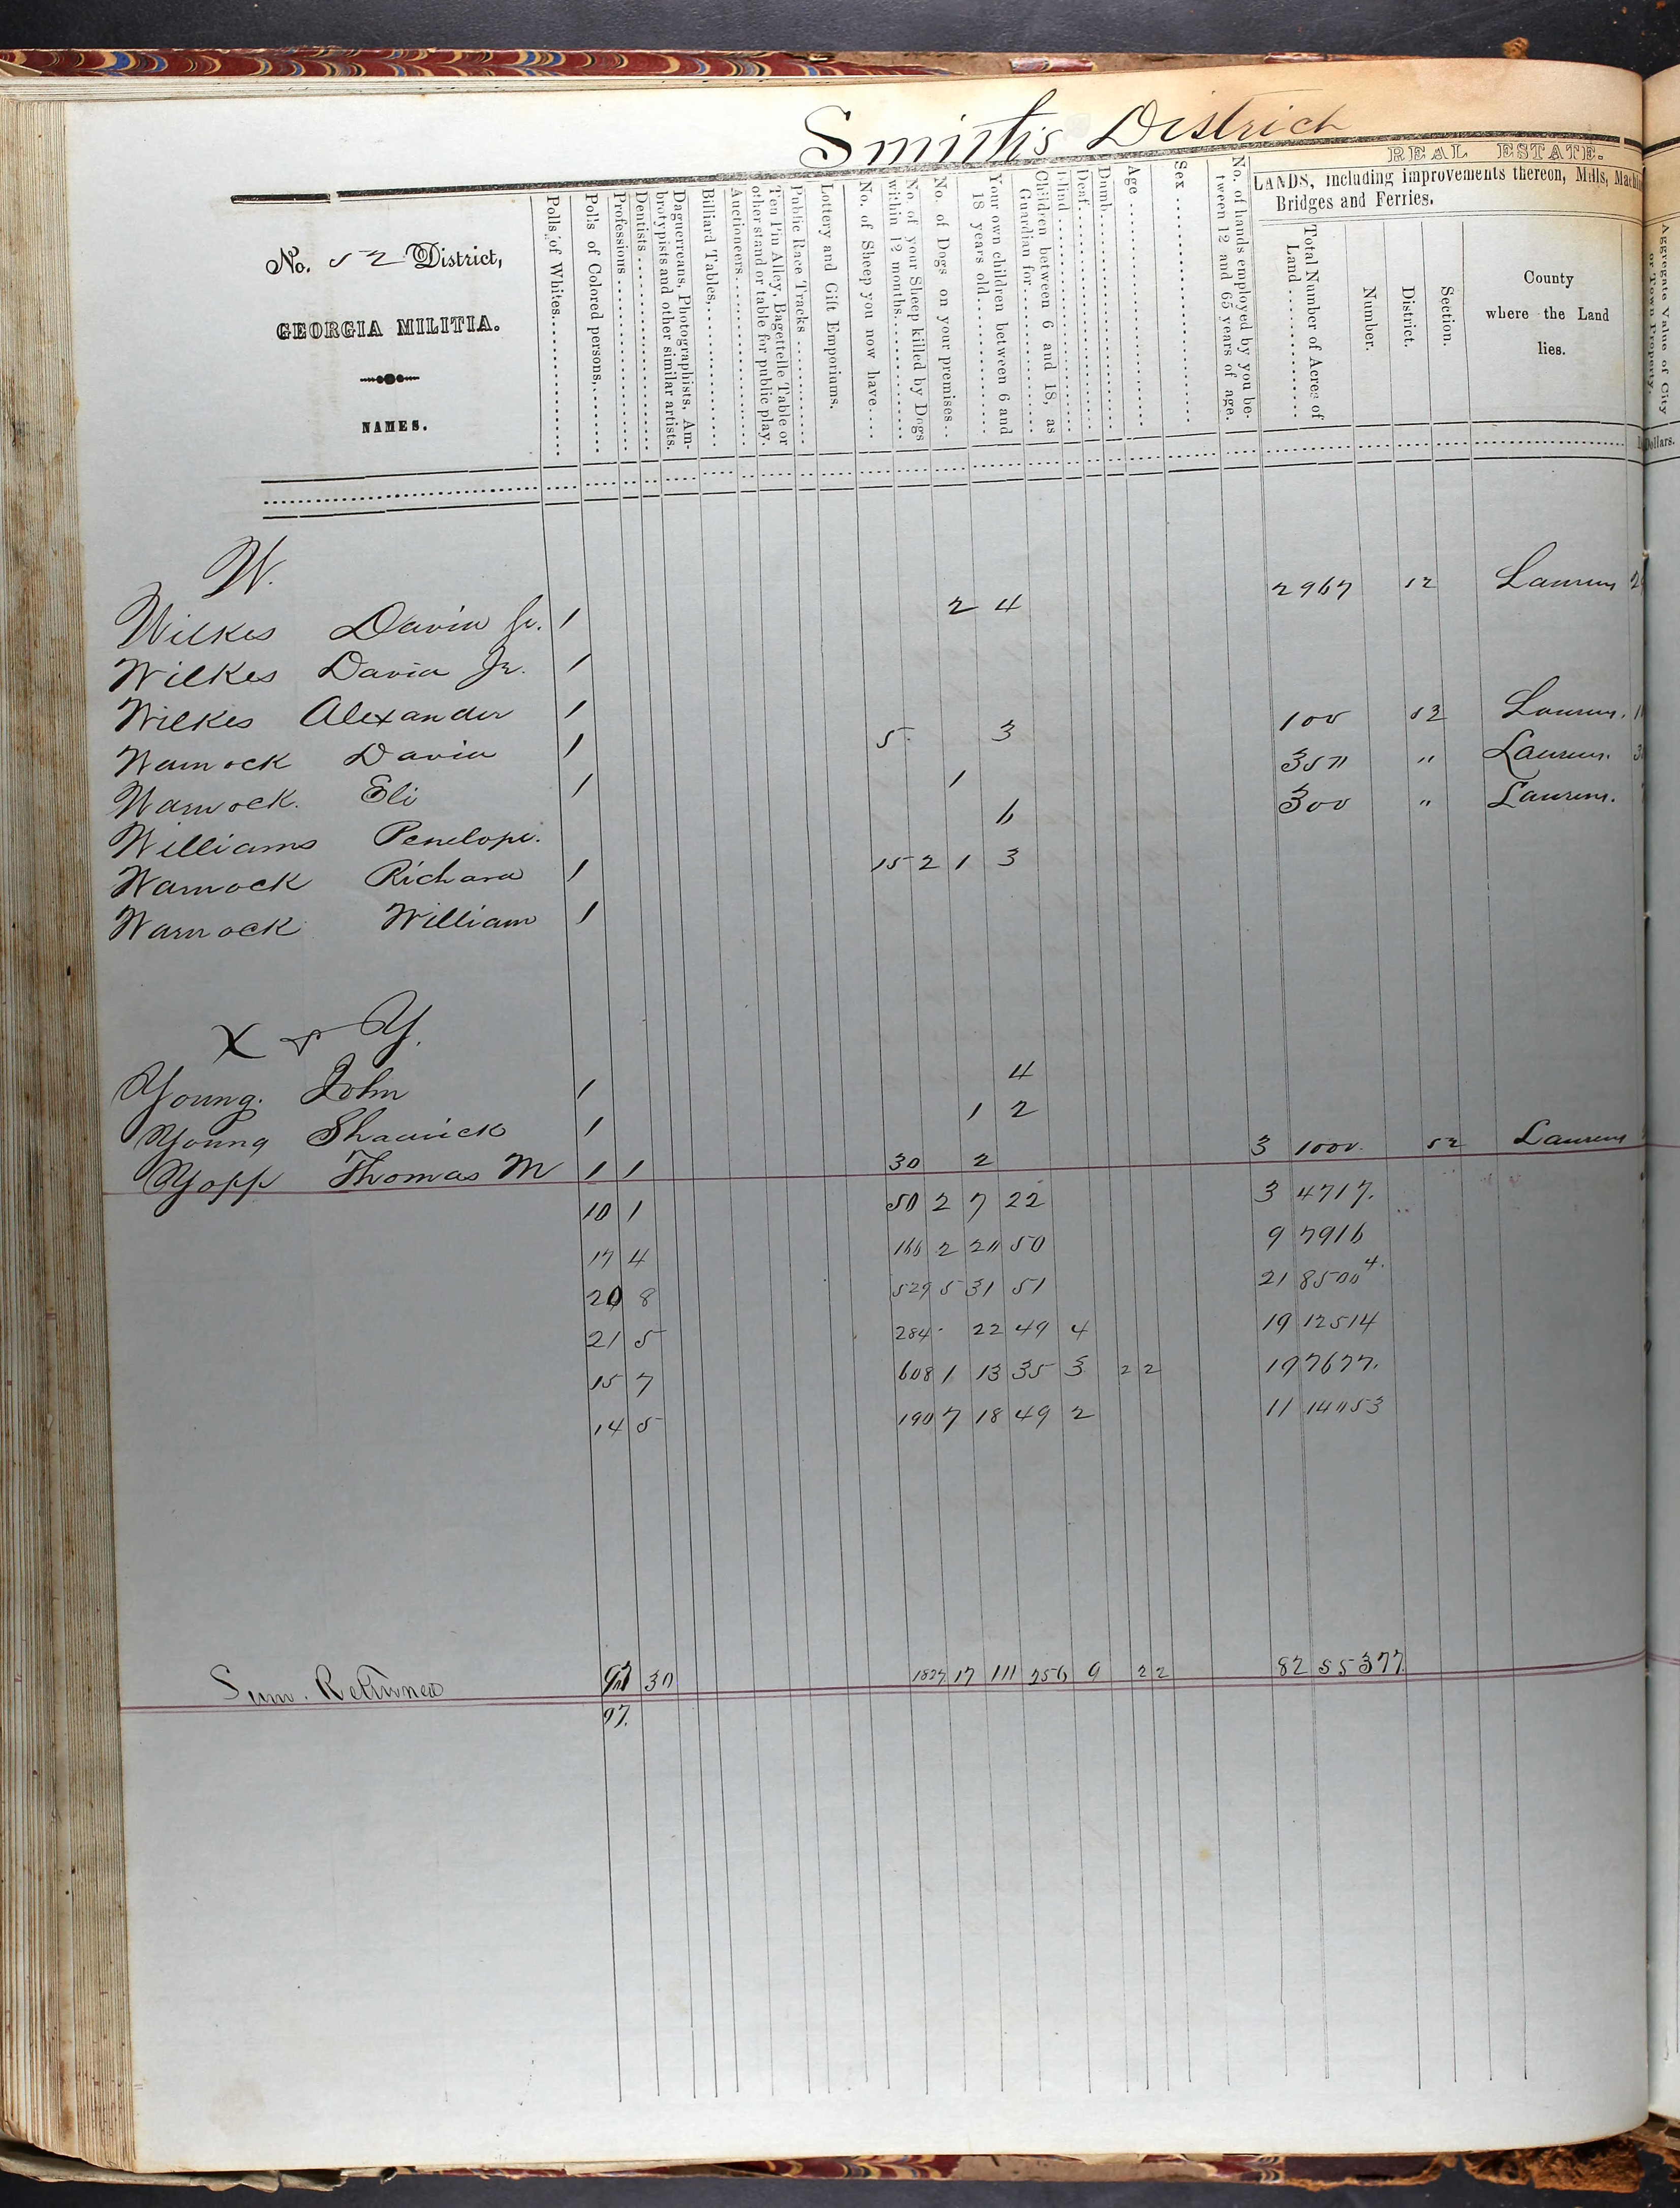 Smith's District
REAL ESTATE.
LANDS, including improvements thereon, Mills,
Bridges and Ferries.
No. 52 District,
GEORGIA MILITIA.
NAMES.
Polls of Whites
Polls of Colored persons,
Professions
Dentists
Daguerreans, Photographists, Am-
brotypists and other similar artists.
Billiard Tables,
Auctioneers
Ten Pin Alley, Bagettelle Table or
other stand or table for public play.
Public Race Tracks
Lottery and Gift Emporiums.
No. of Sheep you now have
No. of your Sheep killed by Dogs
within 12 months
No. of Dogs on your premises
Your own children between 6 and
18 years old
Children between 6 and 18, as
Guardian for
Blind
Deaf
Dumb
Age
Sex
No. of hands employed by you be-
tween 12 and 65 years of age.
Total Number of Acres of
Land
Number.
District.
Section.
County
where the Land
lies.
Aggregate Value of City
or Town Property.
Dollars.
W.
Wilkes David Sr. 1 2 4 2967 52 Laurens
Wilkes David Jr. 1
Wilkes Alexander 1 5 3 100 52 Laurens.
Warnock David 1 1 350 " Laurens.
Warnock. Eli 1 300 " Laurens.
Williams Penelope. 6
Warnock Richard 1 15 2 1 3
Warnock William 1
X & Y.
Young. John 1 4
Young 1 1 2
Yopp Thomas M 1 1 30 2 3 1000. 52 Laurens
10 1 50 2 7 22 3 4717.
17 4 166 2 20 50 9 7916
20 8 529 5 31 51 21 8500 4.
21 5 284 22 49 4 19 12514
15 7 608 1 13 35 3 2 2 19 7677.
14 5 190 7 18 49 2 11 14053
Sum. Returned 30 1827 17 111 256 9 2 2 82 55377.
97.